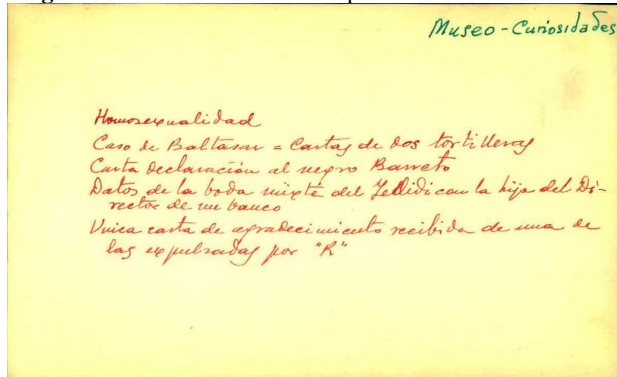 Museo - Curiosidades
Homosexualidad
Caso de Baltasar = Cartas de dos tortilleras
Carta declaración al negro Barreto
Datos de la boda mixta del Jellidi con la hija del Di-
rector de un banco
Unica carta de agradecimiento recibida de una de
las expulsadas por "R"